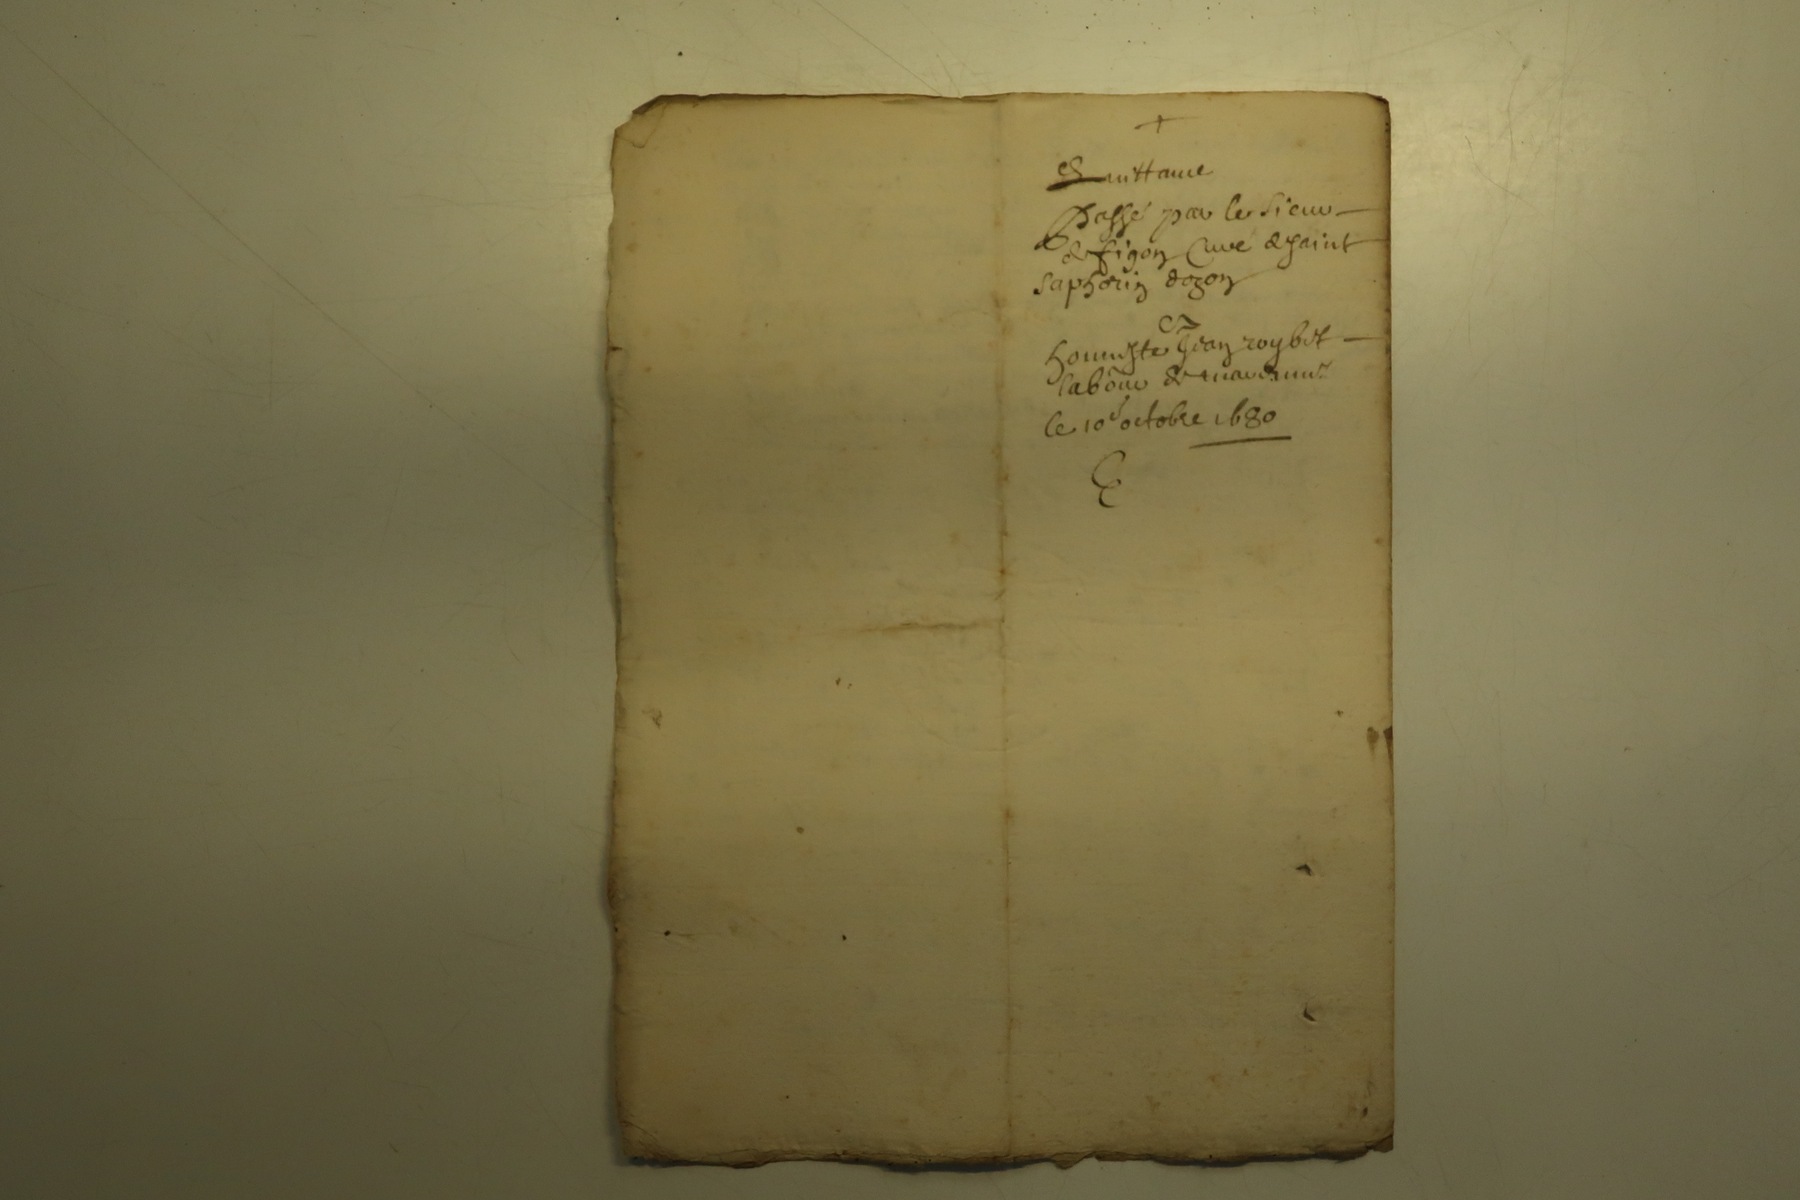 +
Quittance
Passé par le Sieur
de figon Curé de saint
saphorin dozon
a
honneste Jean roybet
labour de
le 10e octobre 1680